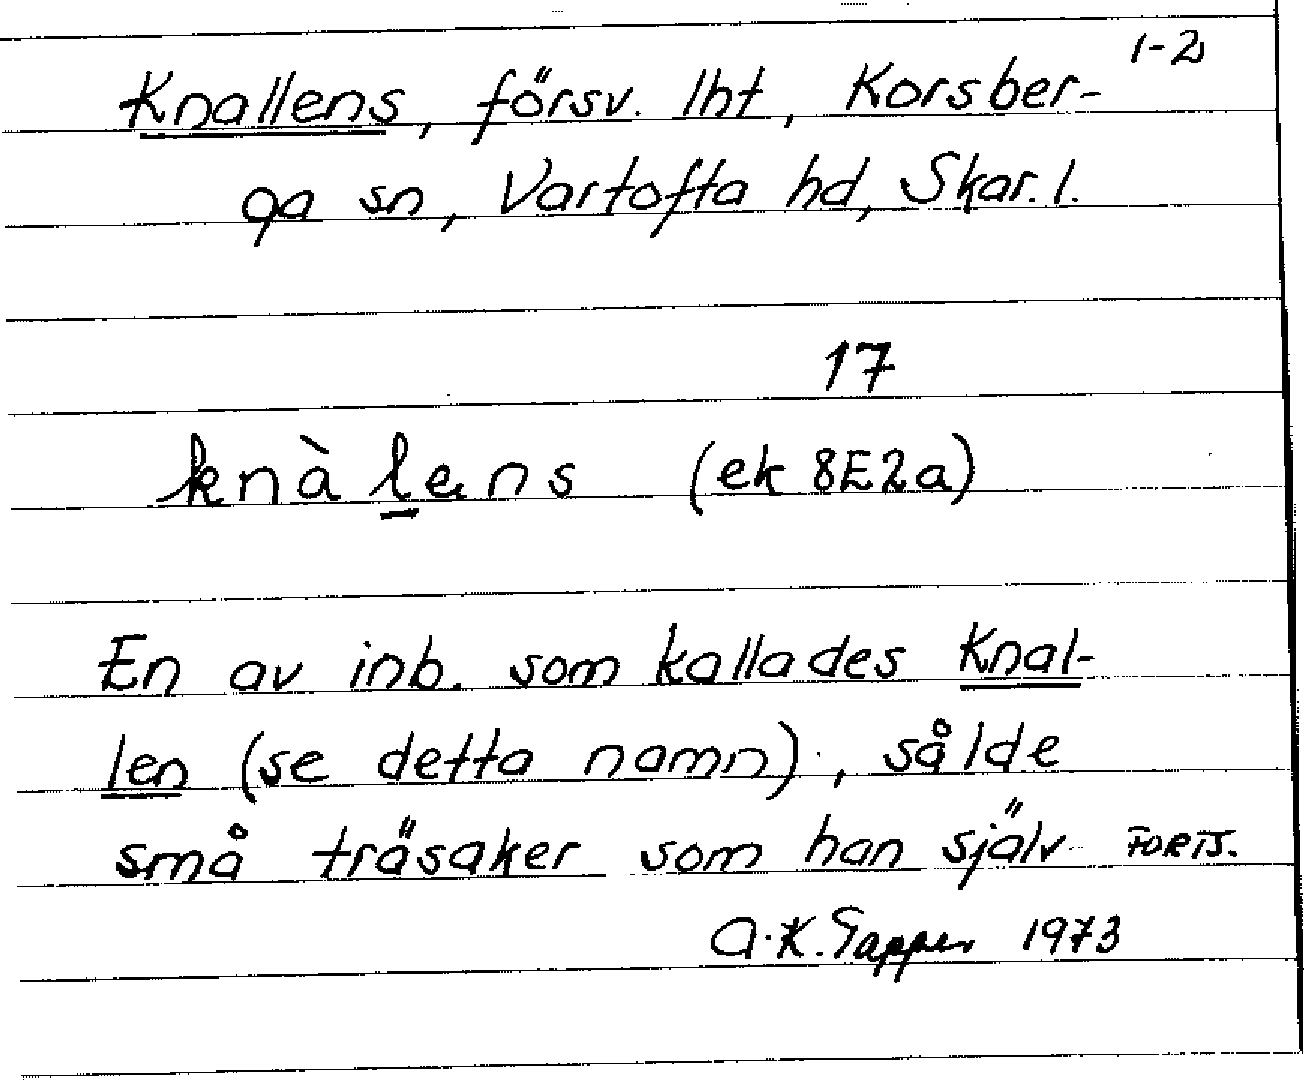 1-2
Knallens, försv. lht, Korsber-
ga sn, Vartofta hd, Skar. l.
17
knàlens (ek 8E2a)
En av inb. som kallades Knal-
len (se detta namn), sålde
små träsaker som han själv FORTS.
A.K. Tapper 1973